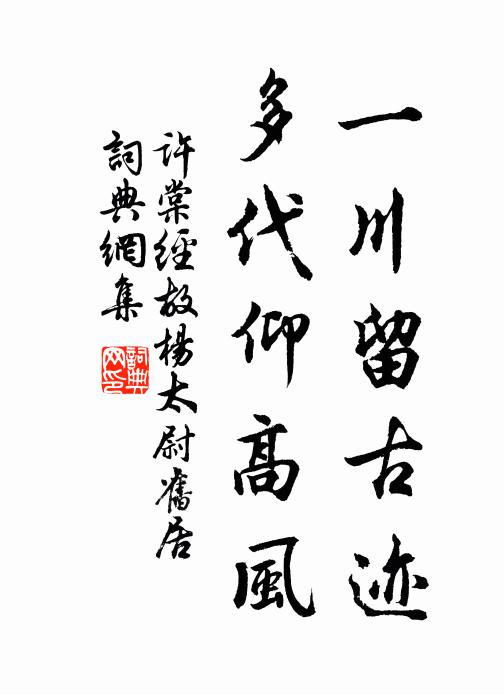 一川留古迹
多代仰高風
許棠經故楊太尉舊居
詞典網集
詞典
网印